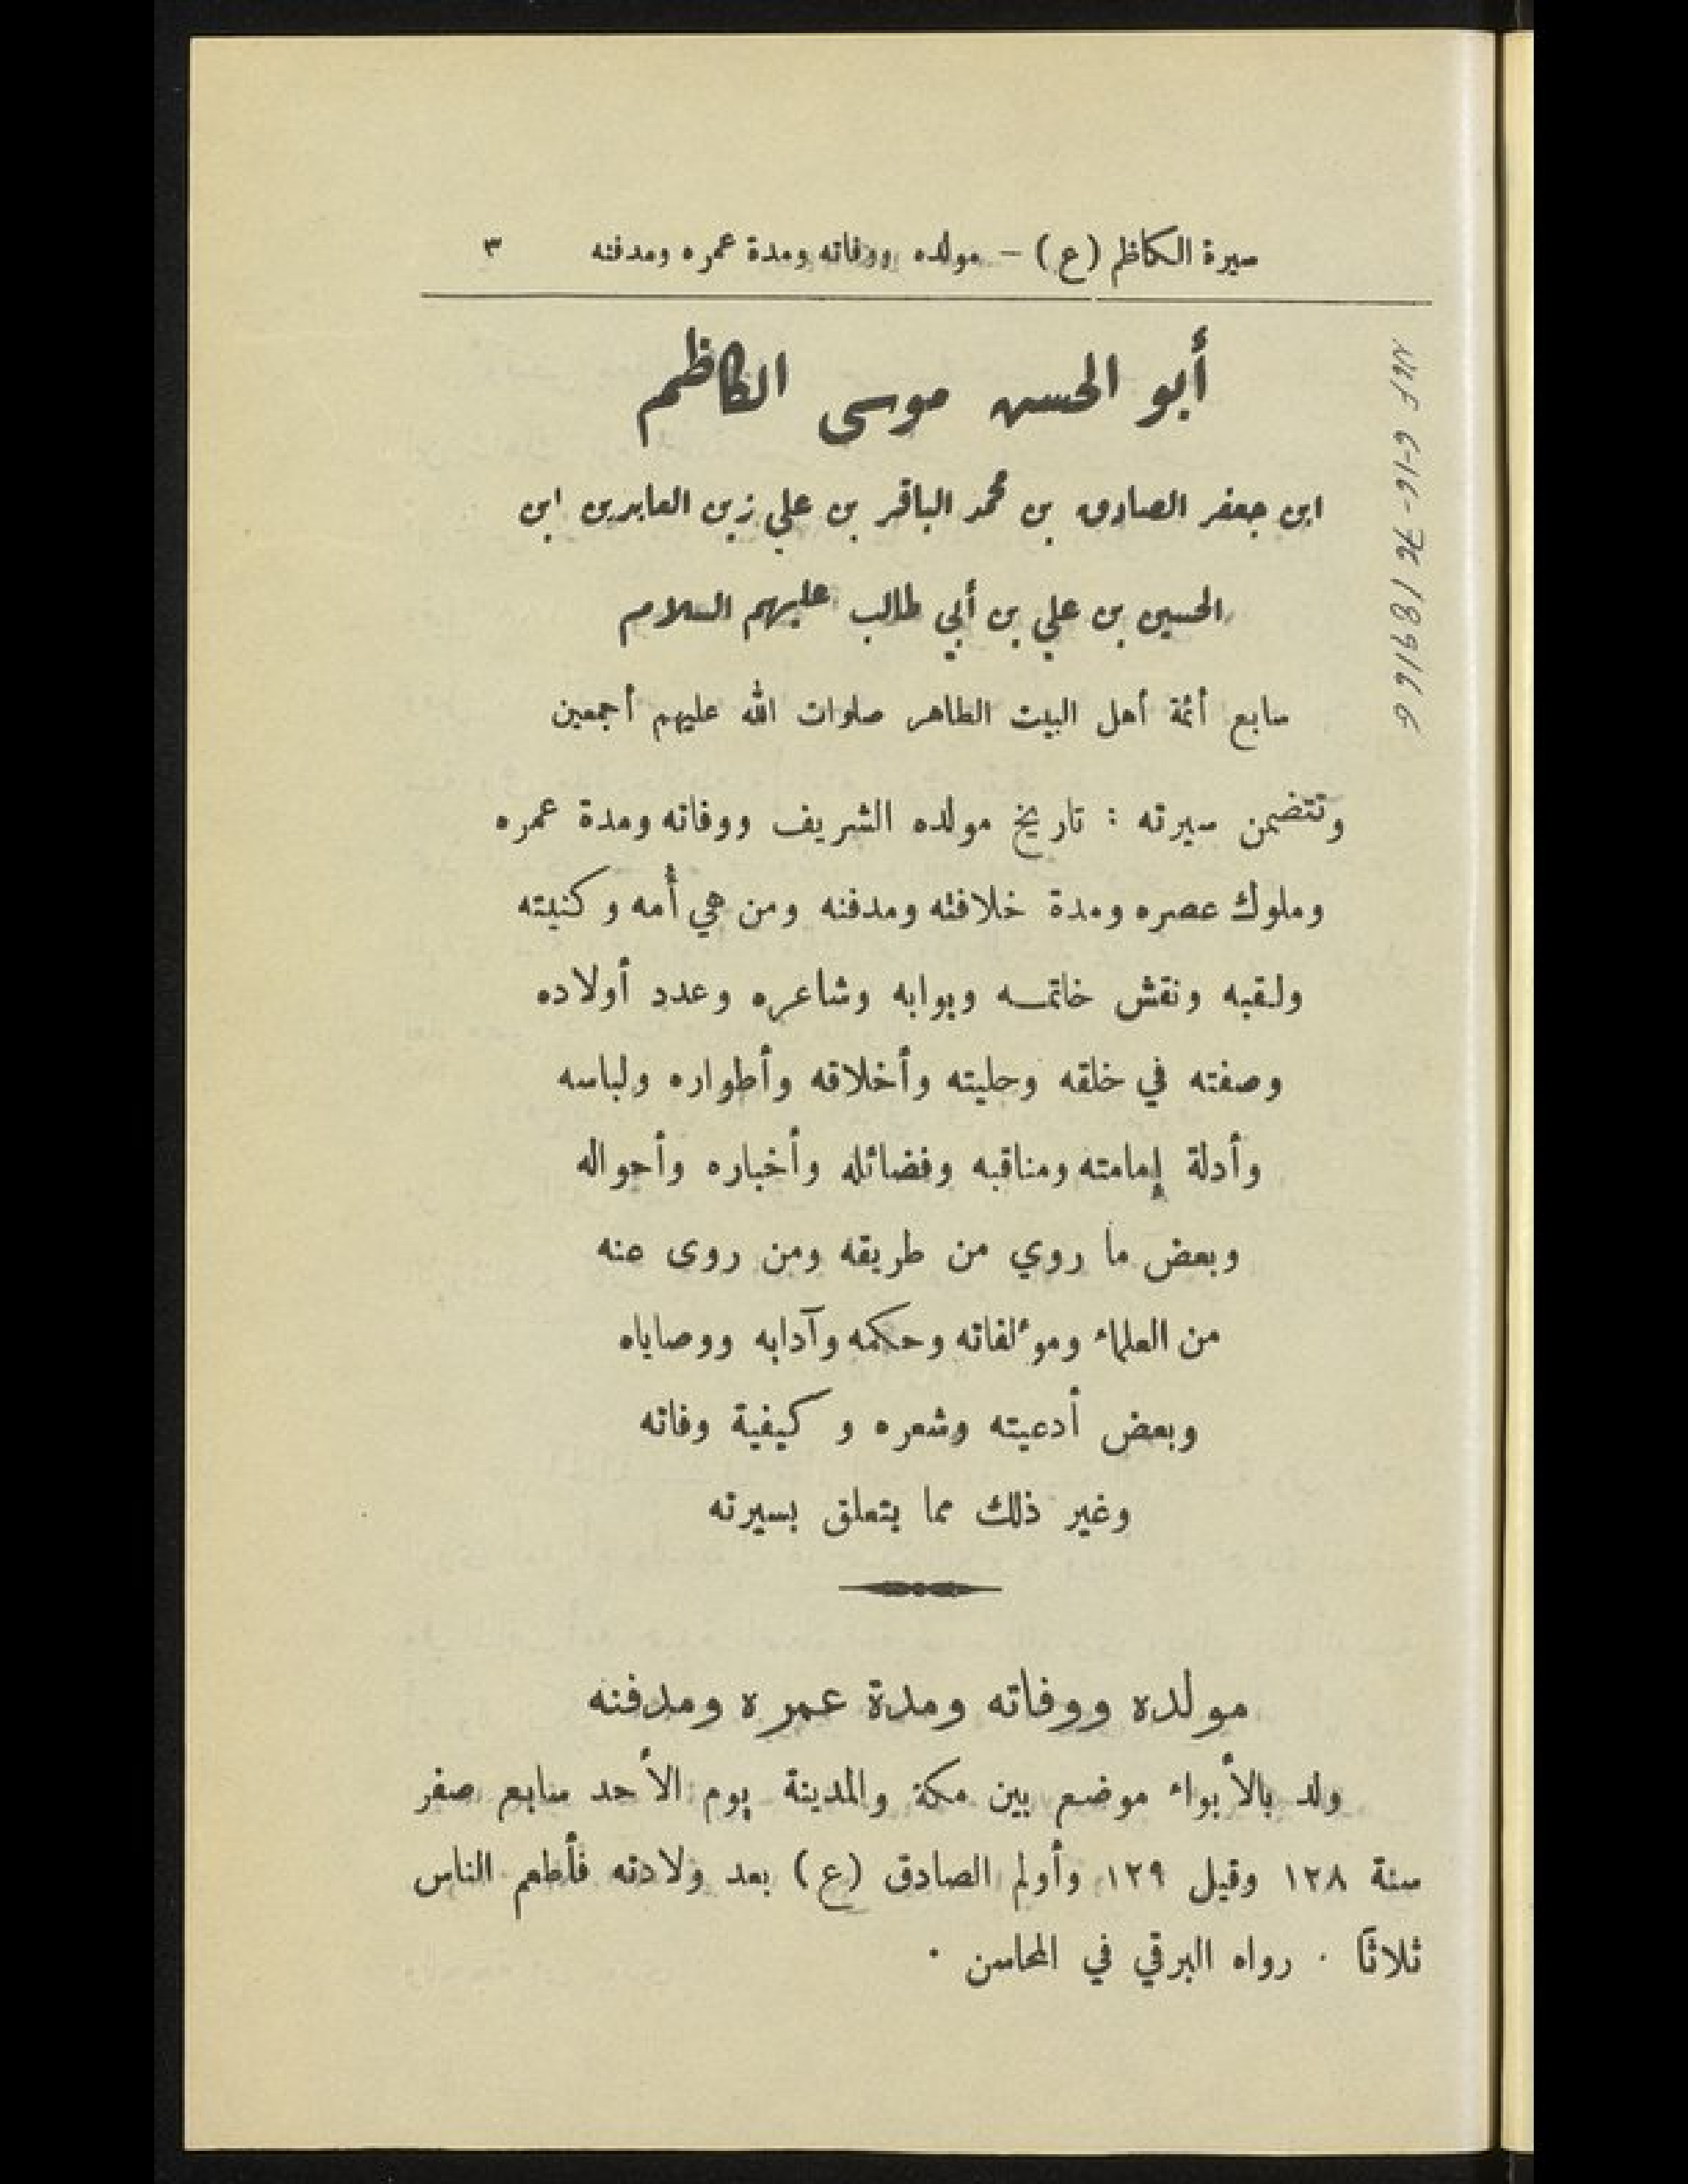 سيرة الكاظم (ع) – مولده ووفاته ومدة عمره ومدفنه ٣
أبو الحسن موسى الكاظم
ابن جعفر الصادق بن محمد الباقر بن علي زين العابدين ابن
الحسين بن علي بن أبي طالب عليهم السلام
سابع أئمة أهل البيت الطاهر صلوات الله عليهم أجمعين
وتتضمن سيرته : تاريخ مولده الشريف ووفاته ومدة عمره
وملوك عصره ومدة خلافته ومدفنه ومن هي أُمه وكنيته
ولقبه ونقش خاتمه وبوابه وشاعره وعدد أولاده
وصفته في خلقه وحليته وأخلاقه وأطواره ولباسه
وأدلة إمامته ومناقبه وفضائله وأخباره وأحواله
وبعض ما روي من طريقه ومن روى عنه
من العلماء ومؤلفاته وحكمه وآدابه ووصاياه
وبعض أدعيته وشعره وكيفية وفاته
وغير ذلك مما يتعلق بسيرته
مولده ووفاته ومدة عمره ومدفنه
ولد بالأبواء موضع بين مكة والمدينة يوم الأحد سابع صفر
سنة ١٢٨ وقيل ١٢٩ وأولم الصادق (ع) بعد ولادته فأطعم الناس
ثلاثاً . رواه البرقي في المحاسن .